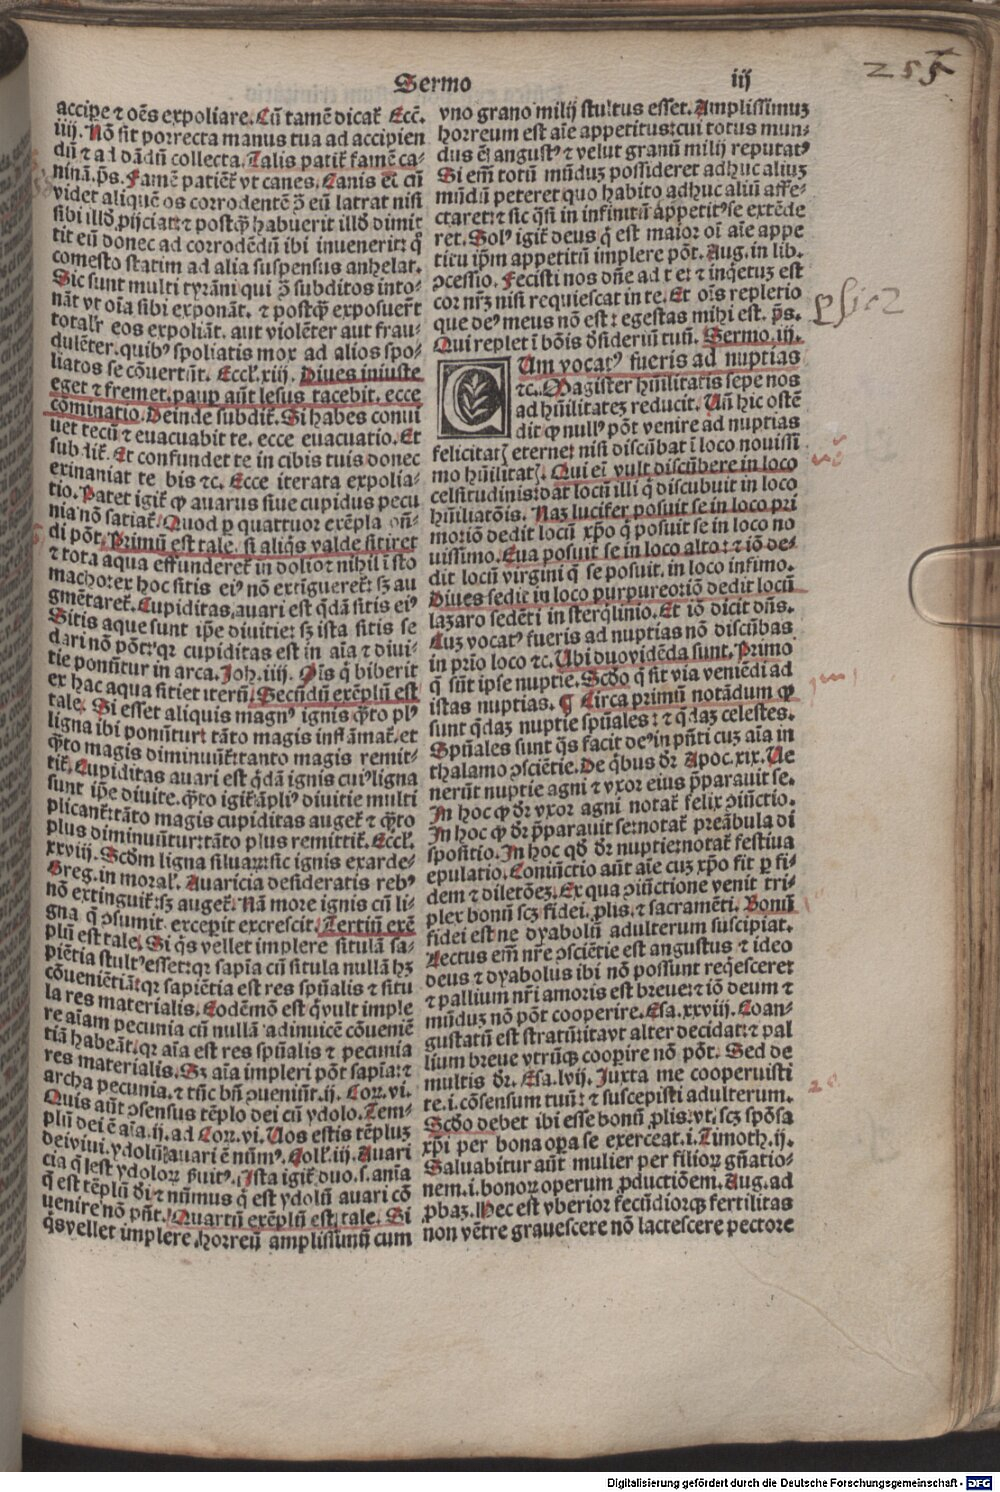 Sermo
iij
255
accipe ⁊ oēs expoliare. Cū tamē dicat̄ Ecc̄.
iiij. Nō sit porrecta manus tua ad accipien
dū ⁊ ad dādū collecta. Talis patit̄ famē ca-
ninā. p̄s. Famē patiēt̄ vt canes. Canis ei cū
videt aliquē os corrodentē ꝓ eū latrat nisi
sibi illd̄ ꝓijciat: ⁊ postꝙ̄ habuerit illd̄ dimit
tit eū donec ad corrodēdū ibi invenerit: q̄
comesto statim ad alia suspensus anhelat.
Sic sunt multi tyrāni qui ꝓ̄ subditos into-
nāt vt oīa sibi exponāt. ⁊ postꝙ̄ exposuer̄t
totalr̄ eos expoliāt. aut violēter aut frau-
dulēter. quibꝰ spoliatis mox ad alios spo-
liatos se cōuertūt. Eccl̄. xiij. Diues iniuste
eget ⁊ fremet. paup aūt lesus tacebit. ecce
cōminatio. Deinde subdit̄. Si habes conui
uet tecū ⁊ euacuabit te. ecce euacuatio. Et
subdit̄. Et confundet te in cibis tuis donec
exinaniat te bis ⁊c. Ecce iterata expolia-
tio. Patet igit̄ ꝙ auarus siue cupidus pecu
nia nō satiat̄. Quod ꝑ quattuor exēpla oñ-
di pōt. Primū est tale. si aliqs̄ valde sitiret
⁊ tota aqua effunderet̄ in dolio: ⁊ nihil ī isto
macho: ex hoc sitis eiꝰ nō extīgueret̄: sꝫ au
gmētaret̄. Cupiditas auari est q̄dā sitis eiꝰ
Sitis aque sunt ip̄e diuitie: sꝫ ista sitis se
dari nō pōt: qꝛ cupiditas est in aīa ⁊ diui-
tie ponūtur in arca. Joh. iiij. Oīs q̄ biberit
ex hac aqua sitiet iterū. Secūdū exēplū est
tale. Si esset aliquis magnꝰ ignis q̄to plꝰ
ligna ibi ponūtur: tāto magis inflāmat̄. et
q̄to magis diminuūt̄: tanto magis remit-
tit̄. Cupiditas auari est q̄dā ignis cuiꝰ ligna
sunt ip̄e diuite. q̄to igit̄ āpliꝰ diuitie multi
plicant̄: tāto magis cupiditas auget̄ ⁊ q̄to
plus diminuūtur: tāto plus remittit̄. Eccl̄.
xxviij. Scd̄m ligna siluaꝝ: sic ignis exarde-
Greg. in moral̄. Auaricia desideratis rebꝰ
nō extinguit̄: sꝫ auget̄. Nā more ignis cū li-
gna q̄ ↄsumit. excepit excrescit. Tertiū exē
plū est tale. Si qs̄ vellet implere situlā sa-
piētia stultꝰ esset: qꝛ sapīa cū situla nullā hꝫ
cōueniētiā: qꝛ sapiētia est res spūalis ⁊ situ
la res materialis. Eodēmō est q̄ vult imple
re aīam pecunia cū nullā adinuicē cōueniē
tiā habeāt. qꝛ aīa est res spūalis ⁊ pecunia
res materialis. Sꝫ aīa impleri pōt sapīa: ⁊
archa pecunia. ⁊ tūc bn̄ ↄueniūt. ij. Corr. vi.
Quis aūt ↄsensus tēplo dei cū ydolo. Tem-
plū dei ē aīa. ij. ad Corr. vi. Uos estis tēpluꝫ
dei viui. ydolū auari ē nūmꝰ. Coll̄. iij. Auari
cia q̄ est ydoloꝝ ẜuitꝰ. Ista igit̄ duo. s. anīa
q̄ est tēplū d̄i ⁊ nūmus q̄ est ydolū auari cō
uenire nō pn̄t. Quartū exēplū est tale. Si
qs̄ vellet implere horreū amplissimū cum
vno grano milij stultus esset. Amplissimuꝫ
horreum est aīe appetitus: cui totus mun-
dus ē angustꝰ ⁊ velut granū milij reputatꝰ
Si em̄ totū mūduꝫ possideret adhuc aliuꝫ
mūdū peteret quo habito adhuc aliū affe-
ctaret: ⁊ sic q̄si in infinitū appetitꝰ se extēde
ret. Solꝰ igit̄ deus q̄ est maior oī aīe appe
titu ip̄m appetitū implere pōt. Aug. in lib.
ↄcessio. Fecisti nos dn̄e ad te: ⁊ inq̄etuꝫ est
cor nr̄ꝫ nisi requiescat in te. Et oīs repletio
que deꝰ meus nō est: egestas mihi est. p̄s.
Qui replet ī bōis d̄sideriū tuū. Sermo. iij.
CUm vocatꝰ fueris ad nuptias
⁊c. Magister hūilitatis sepe nos
ad hūilitateꝫ reducit. Uñ hic ostē
dit ꝙ nullꝰ pōt venire ad nuptias
felicitatꝭ eterne: nisi discūbat ī loco nouissi
mo hūilitatꝭ. Qui ei vult discūbere in loco
celsitudinis: dat locū illi q̄ discubuit in loco
hūiliatōis. Naꝫ lucifer posuit se in loco pri
mo: iō dedit locū xp̄o q̄ posuit se in loco no
uissimo. Eua posuit se in loco alto: ⁊ iō de-
dit locū virgini q̄ se posuit. in loco infimo.
Diues sedit in loco purpureo: iō dedit locū
lazaro sedēti in sterq̄linio. Et iō dicit dn̄s.
Cuꝫ vocatꝰ fueris ad nuptias nō discūbas
in prīo loco ⁊c. Ubi duo vidēda sunt. Primo
q̄ sūt ipse nuptie. Scd̄o q̄ sit via veniēdi ad
istas nuptias. ¶ Circa primū notādum ꝙ
sunt q̄daꝫ nuptie spūales: ⁊ q̄daꝫ celestes.
Spūales sunt q̄s facit deꝰ in pn̄ti cuꝫ aīa in
thalamo ↄsciētie. De q̄bus d̄r Apoc. xix. Ue
nerūt nuptie agni ⁊ vxor eius p̄parauit se.
In hoc ꝙ d̄r vxor agni notat̄ felix ↄiūctio.
In hoc ꝙ d̄r p̄parauit se: notat̄ preābula di
spositio. In hoc qd̄ d̄r nuptie: notat̄ festiua
epulatio. Coniūctio aūt aīe cuꝫ xp̄o fit ꝑ fi-
dem ⁊ dilectōeꝫ. Ex qua ↄiūctione venit tri-
plex bonū scꝫ fidei. ꝓlis. ⁊ sacramēti. Bonū
fidei est ne dyabolū adulterum suscipiat.
Lectus em̄ nr̄e ↄsciētie est angustus ⁊ ideo
deus ⁊ dyabolus ibi nō possunt req̄escere:
⁊ pallium nr̄i amoris est breue: ⁊ iō deum ⁊
mūduꝫ nō pōt cooperire. Esa. xxviij. Coan-
gustatū est stratū: ita vt alter decidat: ⁊ pal
lium breue vtrūqꝫ cooꝑire nō pōt. Sed de
multis d̄r. Esa. lvij. Juxta me cooperuisti
te. i. cōsensum tuū: ⁊ suscepisti adulterum.
Scd̄o debet ibi esse bonū ꝓlis: vt. scꝫ spōsa
xp̄i per bona oꝑa se exerceat. i. Timoth. ij.
Saluabitur aūt mulier per filioꝝ gn̄atio-
nem. i. bonoꝝ operum ꝓductiōem. Aug. ad
ꝓbaꝫ. Hec est vberior fecūdiorqꝫ fertilitas
non vētre grauescere nō lactescere pectore
Digitalisierung gefördert durch die Deutsche Forschungsgemeinschaft - DFG